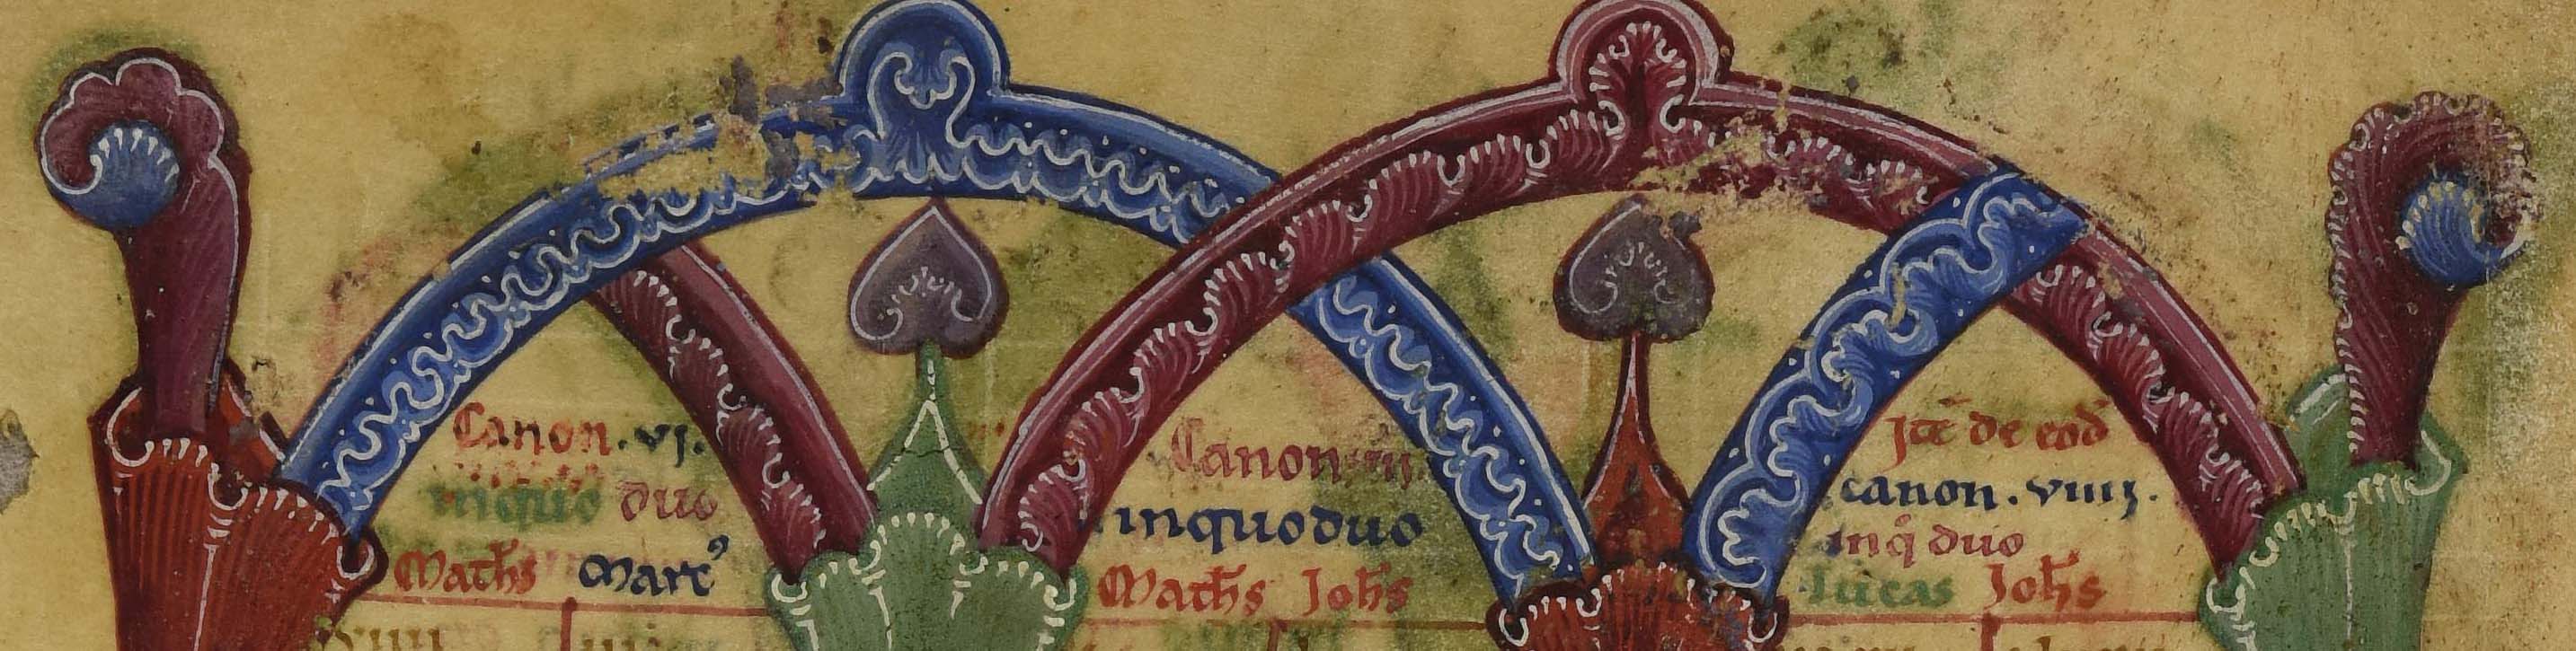 Canon . vj .
inquo duo
Maths̄ Marc⁹
Canon vii
inquo duo
Maths̄ Joh̄s
Jtē de eod̄
canon . viiij .
inq̄ duo
Lucas Joh̄s